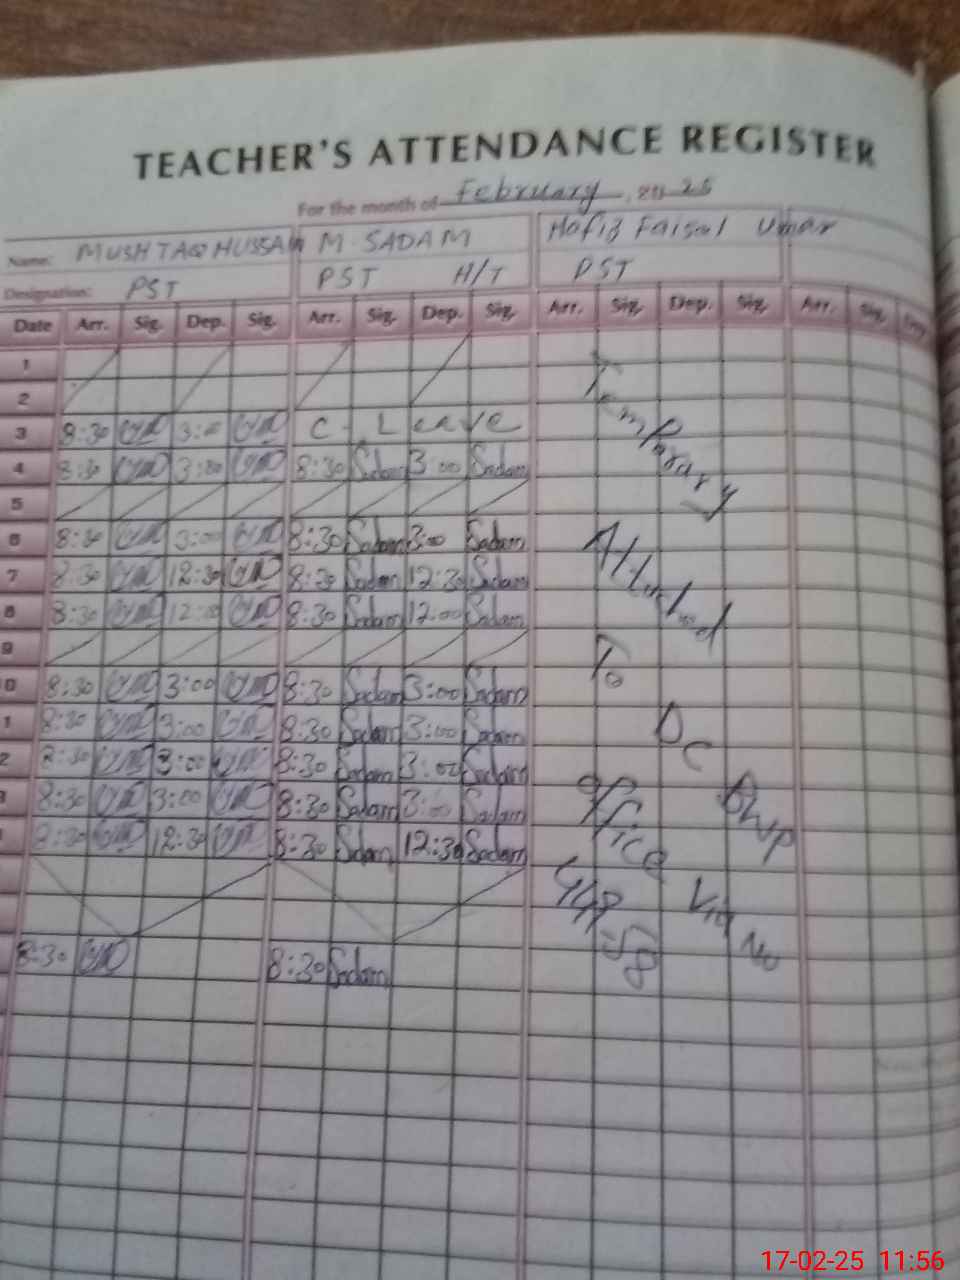 TEACHER'S ATTENDANCE REGISTER
For the month of February, 2025
Name: MUSHTAQ HUSSAIN M. SADAM Hafiz Faisal Umar
Designation: PST PST H/T PST
Date Arr. Sig. Dep. Sig. Arr. Sig. Dep. Sig. Arr. Sig. Dep. Sig. Arr. Sig.
1
2
3 8:30 3:00 C. Leave
4 8:30 3:00 8:30 Sadam 3:00 Sadam
5
6 8:30 3:00 8:30 Sadam 3:00 Sadam
7 8:30 12:30 8:30 Sadam 12:30 Sadam
8 8:30 12:00 8:30 Sadam 12:00 Sadam
9
0 8:30 3:00 8:30 Sadam 3:00 Sadam
1 8:30 3:00 8:30 Sadam 3:00 Sadam
2 8:30 3:00 8:30 Sadam 3:00 Sadam
8:30 3:00 8:30 Sadam 3:00 Sadam
8:30 12:30 8:30 Sadam 12:30 Sadam
8:30 8:30 Sadam
Temporary
To
DC
office BWP
No
17-02-25 11:56